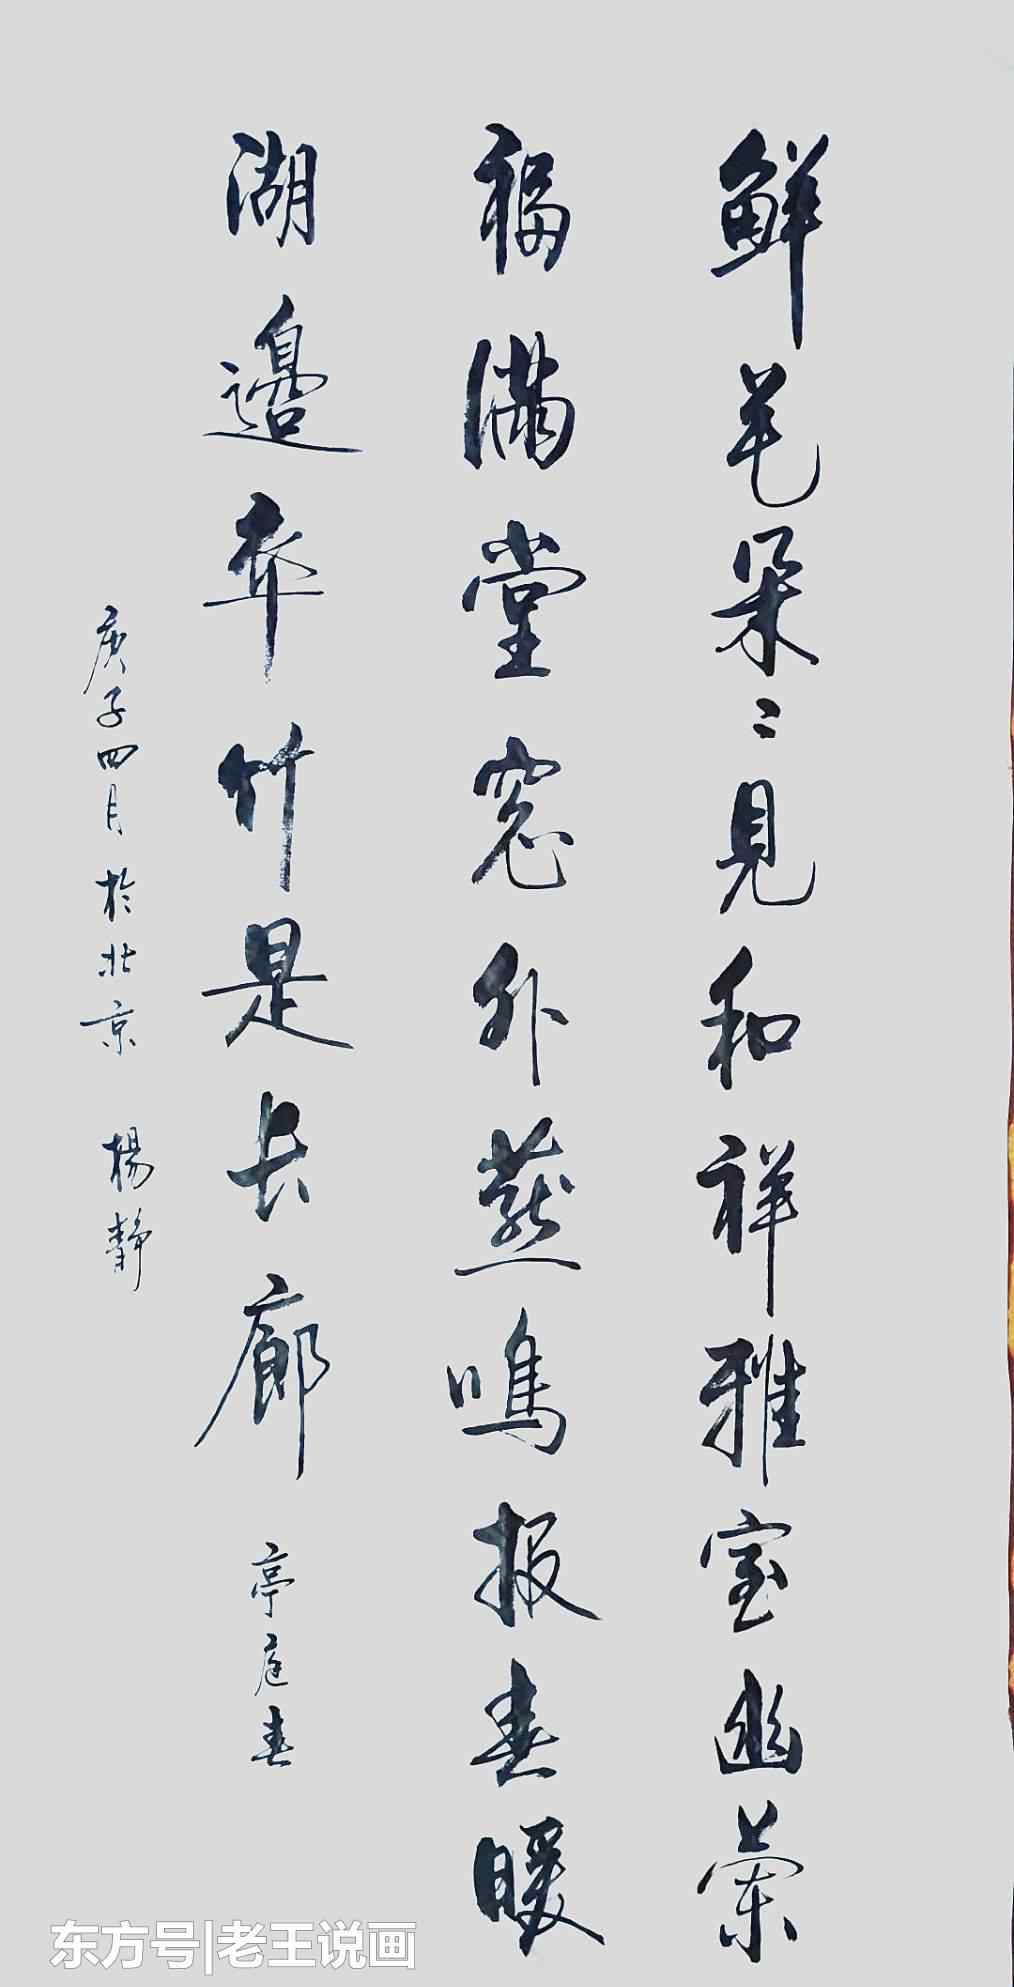 鲜花朵〻見和祥雅室幽蘭
福满堂窓外燕鳴报春暖
湖邊翠竹是长廊 亭庭春
庚子四月於北京 楊靜
东方号|老王说画